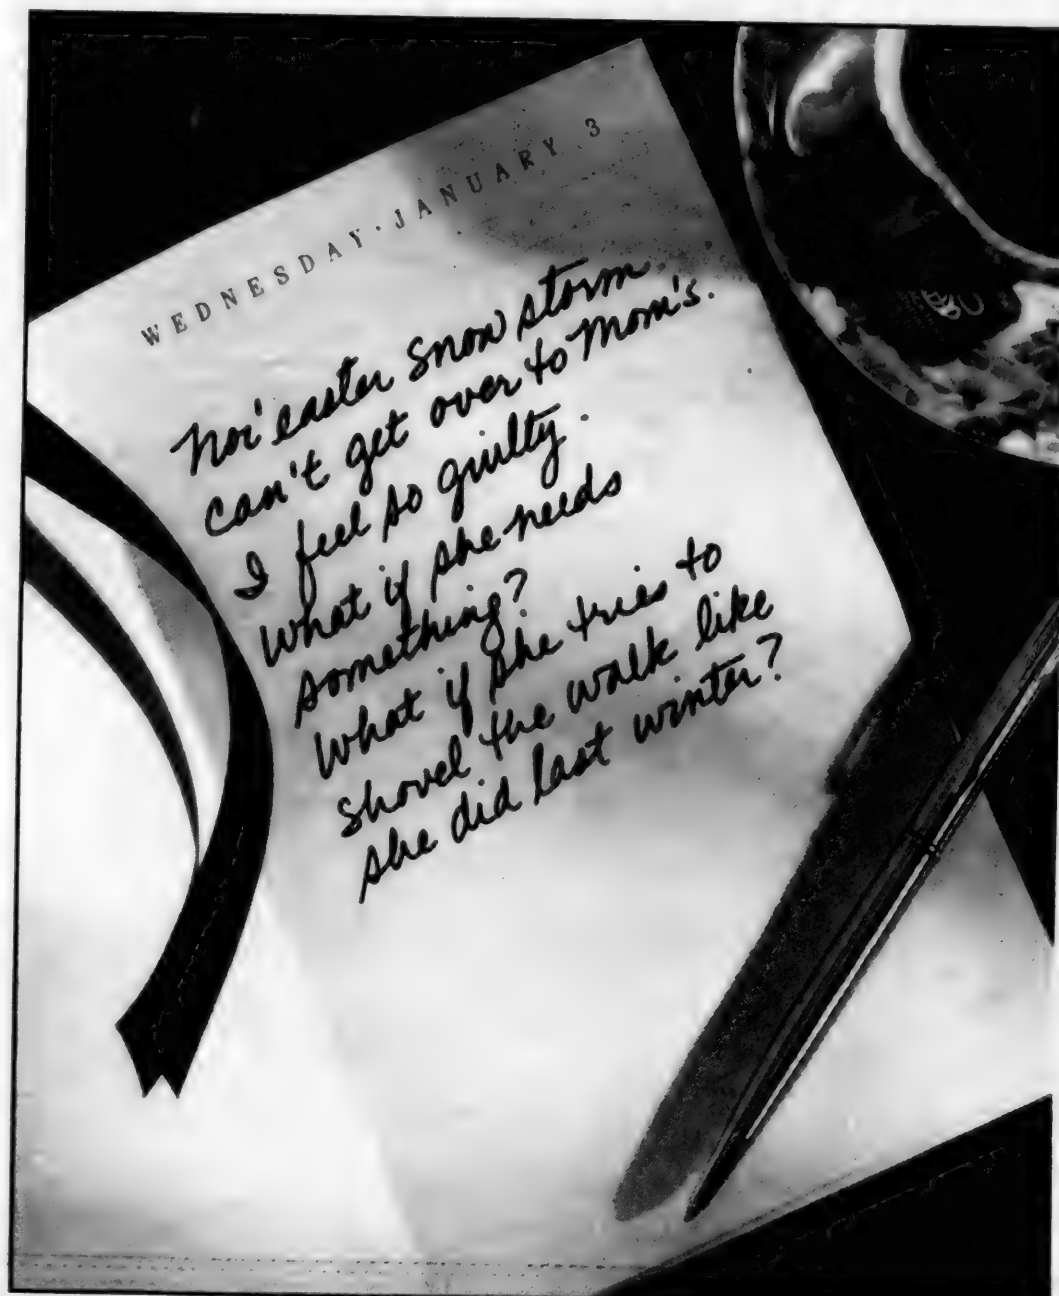 WEDNESDAY·JANUARY 3
Nor'easter snow storm
can't get over to Mom's.
I feel so guilty.
What if she needs
something?
What if she tries to
shovel the walk like
she did last winter?